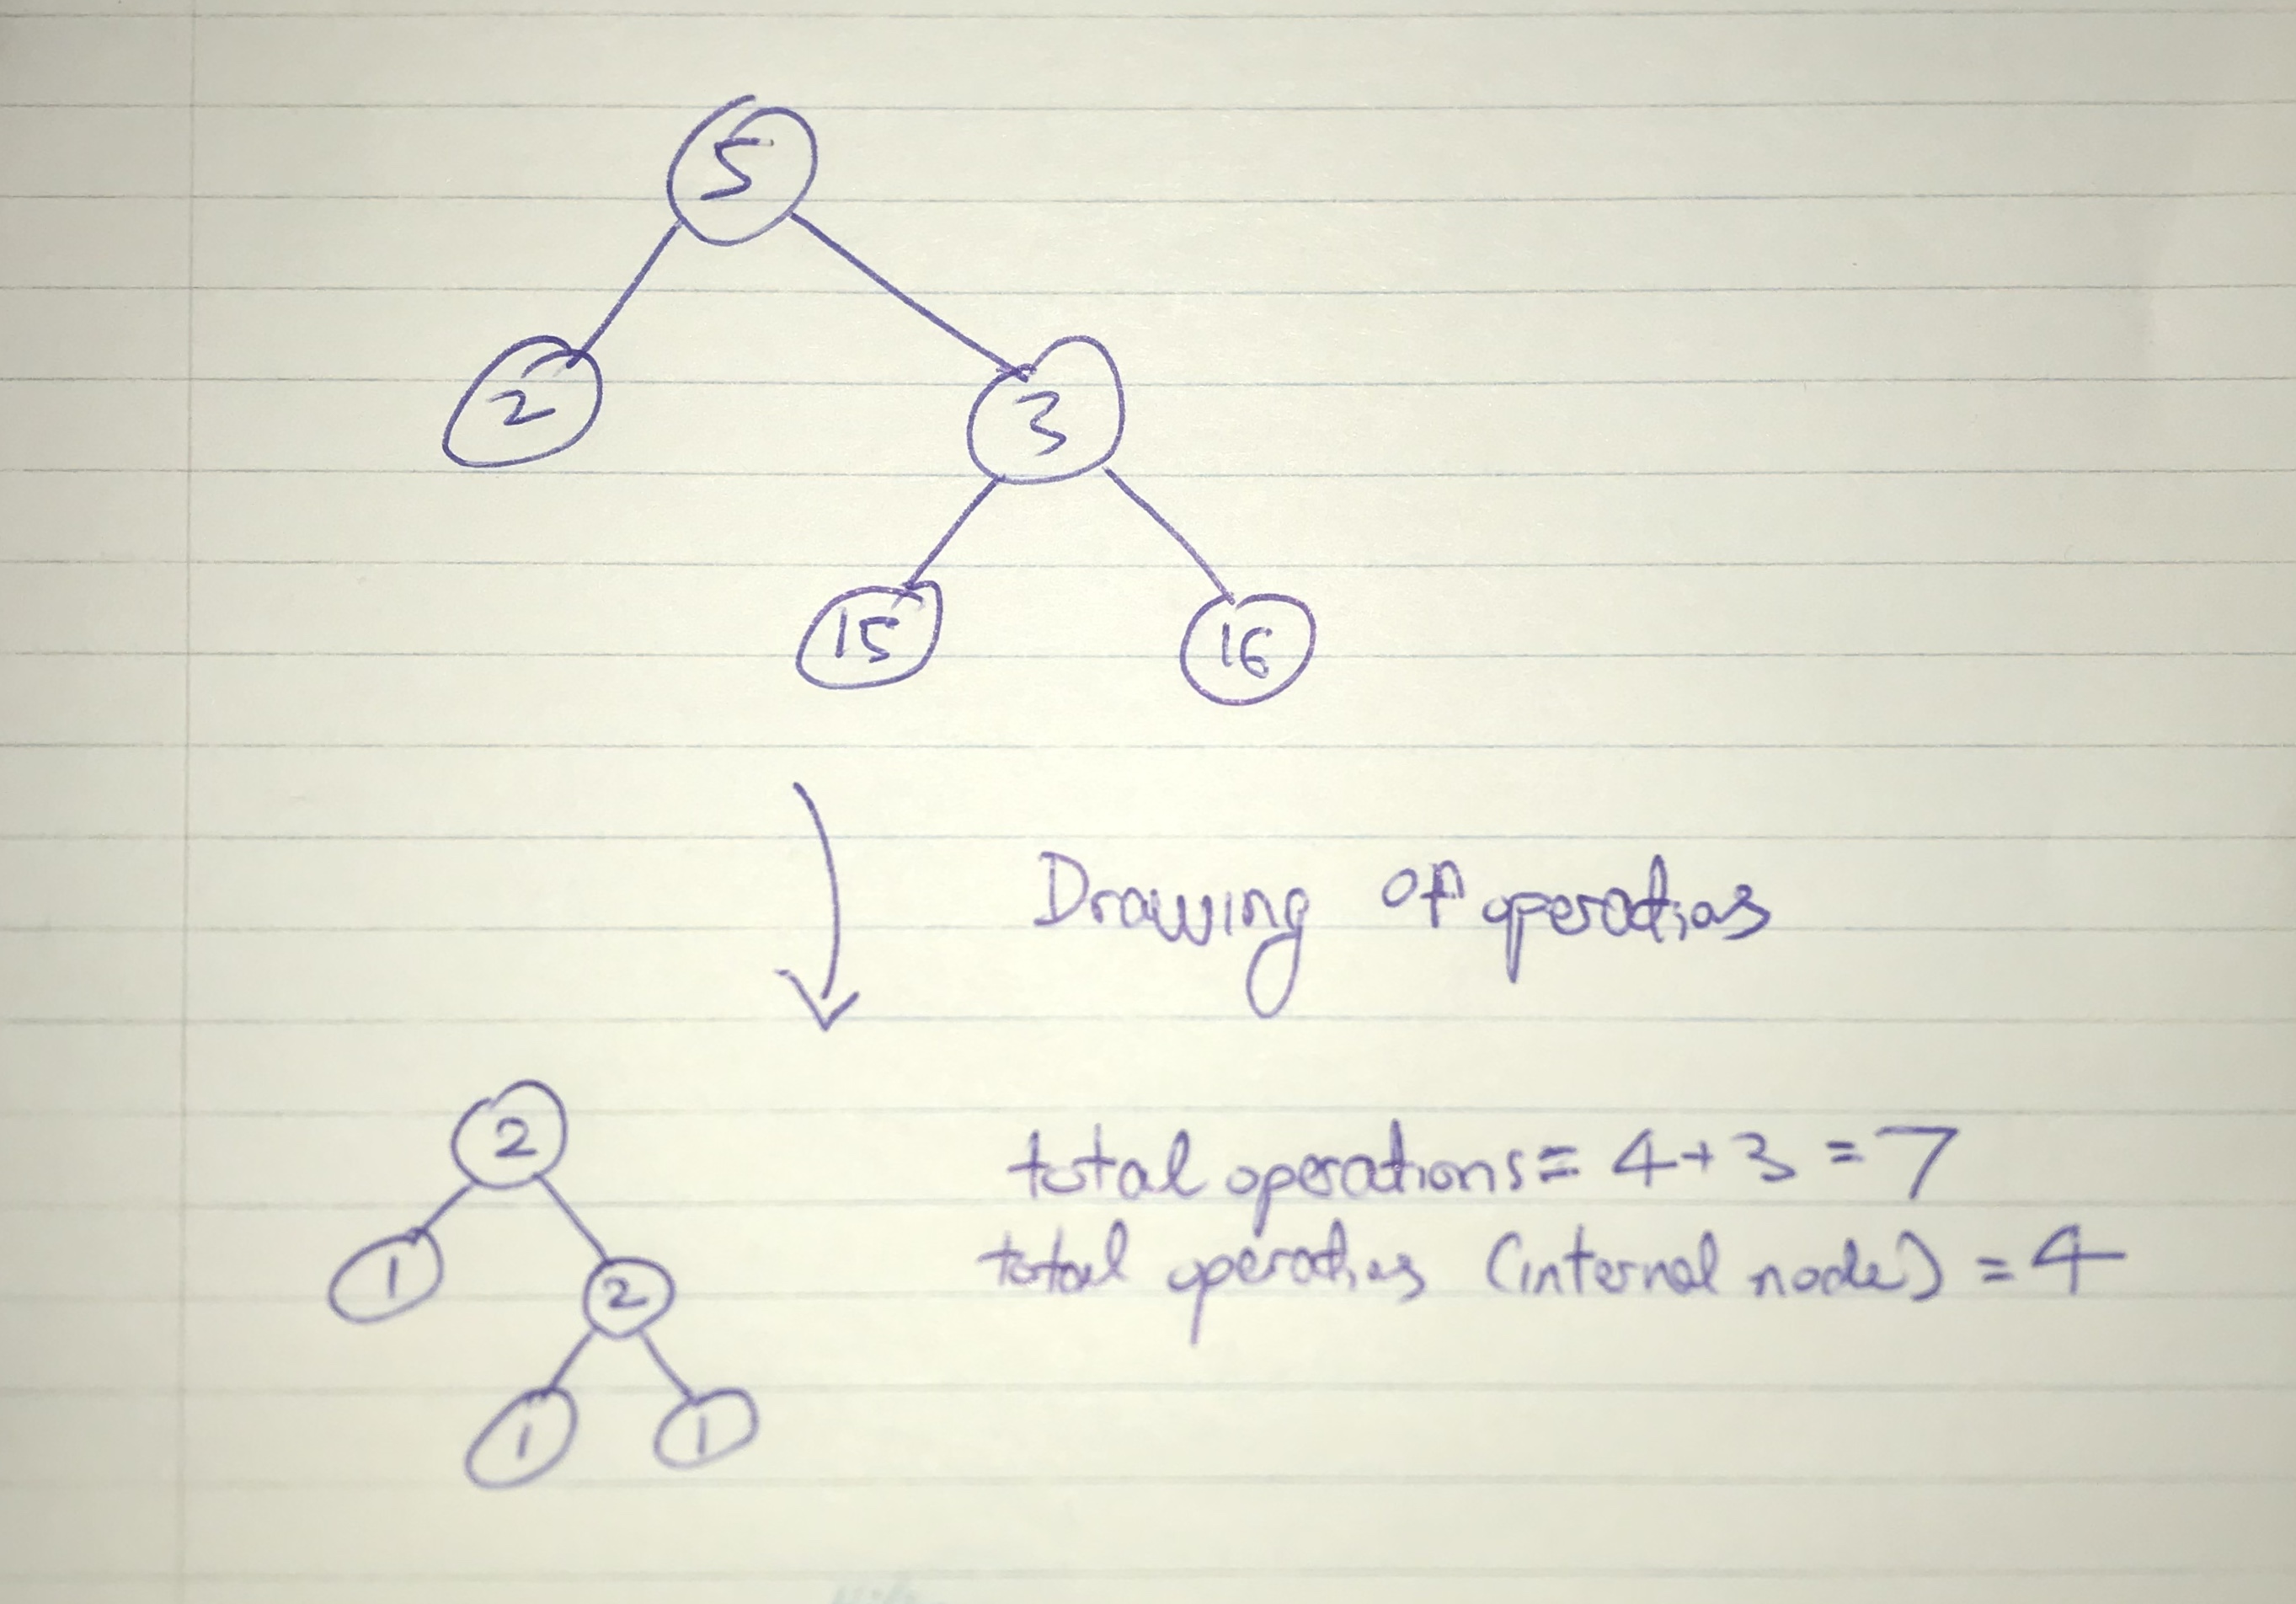 5
2 3
15 16
Drawing of operations
2
1 2
1 1
total operations = 4 + 3 = 7
total operations (internal node) = 4